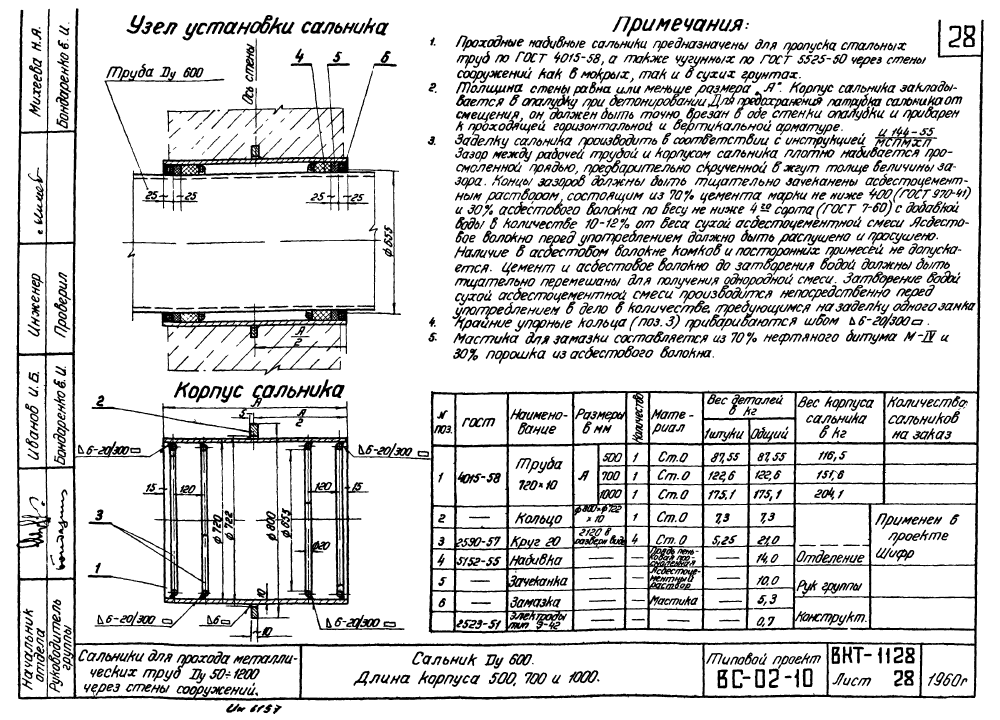 Узел установки сальника
Труба Dу 600
Ось стены
4 5 6
25 25
25 25
ф655
А
2
Корпус сальника
А
5
А
2
2
Δ6-20/300
Δ6-20/300
15
120
120
15
ф720
ф722
ф800
ф655
ф20
3
1
10
10
Δ6-20/300
Δ6
Δ6-20/300
Примечания:
28
1. Проходные набивные сальники предназначены для пропуска стальных
труб по ГОСТ 4015-58, а также чугунных по ГОСТ 5525-60 через стены
сооружений как в мокрых, так и в сухих грунтах.
2. Толщина стены равна или меньше размера „А". Корпус сальника заклады-
вается в опалубку при бетонировании. Для предохранения патрубка сальника от
смещения, он должен быть точно врезан в обе стенки опалубки и приварен
к проходящей горизонтальной и вертикальной арматуре.
3. Заделку сальника производить в соответствии с инструкцией И 144-55
МСПМХП
Зазор между рабочей трубой и корпусом сальника плотно набивается про-
смоленной прядью, предварительно скрученной в жгут толще величины за-
зора. Концы зазоров должны быть тщательно зачеканены асбестоцемент-
ным раствором, состоящим из 70% цемента марки не ниже 400 (ГОСТ 970-41)
и 30% асбестового волокна по весу не ниже 4го сорта (ГОСТ 7-60) с добавкой
воды в количестве 10-12% от веса сухой асбестоцементной смеси. Асбесто-
вое волокно перед употреблением должно быть распушено и просушено.
Наличие в асбестовом волокне комков и посторонних примесей не допуска-
ется. Цемент и асбестовое волокно до затворения водой должны быть
тщательно перемешаны для получения однородной смеси. Затворение водой
сухой асбестоцементной смеси производится непосредственно перед
употреблением в дело в количестве, требующимся на заделку одного замка
4. Крайние упорные кольца (поз. 3) привариваются швом Δ6-20/300.
5. Мастика для замазки составляется из 70% нефтяного битума М-IV и
30% порошка из асбестового волокна.
N поз. ГОСТ Наимено-вание Размеры в мм Количество Мате-риал Вес деталей в кг 1 штуки Общий Вес корпуса сальника в кг Количество сальников на заказ
1 4015-58 Труба 720×10 А 500 1 Ст.0 87,55 87,55 116,5
700 1 Ст.0 122,6 122,6 151,6
1000 1 Ст.0 175,1 175,1 204,1
2 — Кольцо ф800×ф722 ×10 1 Ст.0 7,3 7,3
3 2590-57 Круг 20 2120 в разверн виде 4 Ст.0 5,25 21,0
4 5152-55 Набивка — — Прядь пень-ковая про-смоленная — 14,0
5 — Зачеканка — — Асбестоце-ментный раствор — 10,0
6 — Замазка — — Мастика — 5,3
2523-51 Электроды тип Э-42 — — — — 0,7
Применен в
проекте
Шифр
Отделение
Рук группы
Конструкт.
Сальники для прохода металли-
ческих труб Dу 50÷1200
через стены сооружений.
Сальник Dу 600.
Длина корпуса 500, 700 и 1000.
Типовой проект
ВС-02-10
ВКТ-1128
Лист 28
1960г
Михеева Н.А.
Бондаренко В.И.
Инженер
Проверил
Иванов И.Б.
Бондаренко В.И.
Начальник отдела
Руководитель группы
Ин 6157